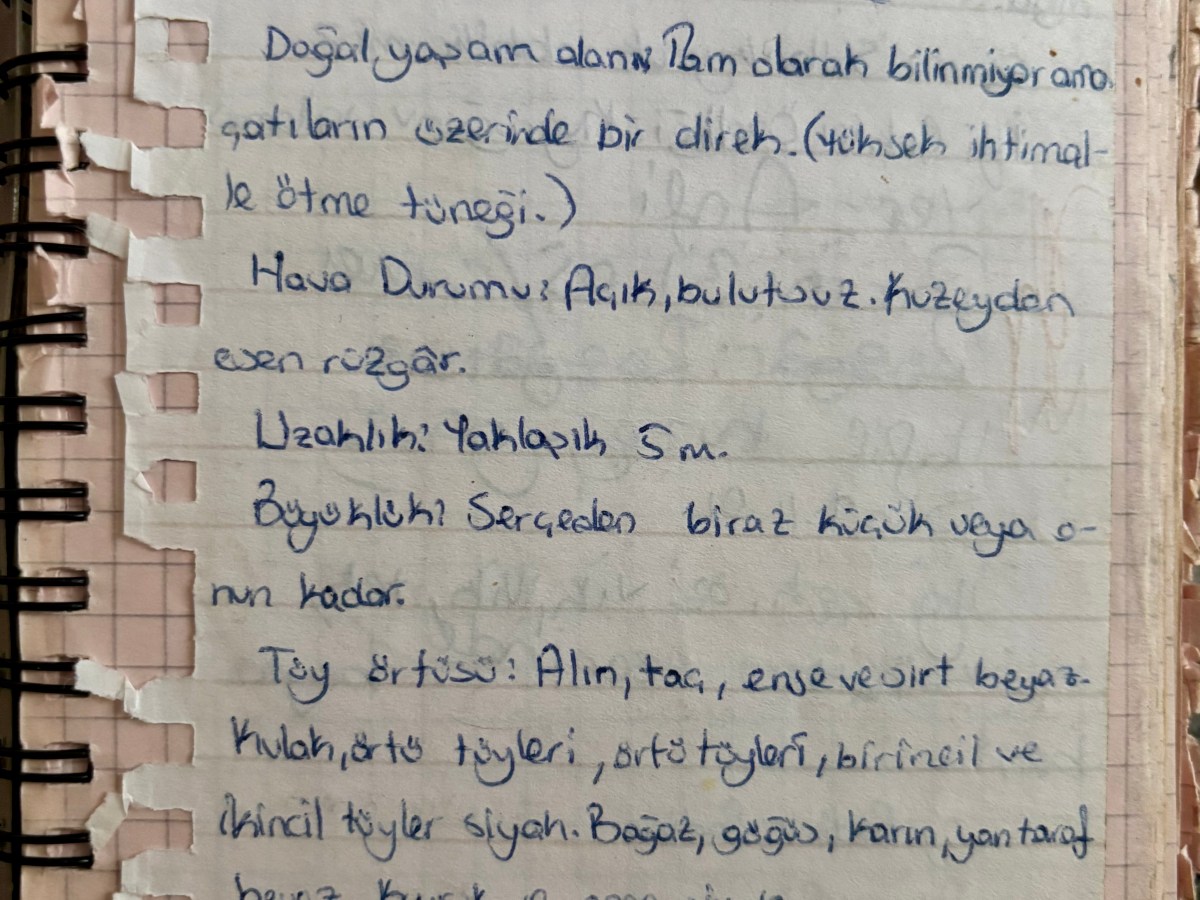 Doğal yaşam alanı: Tam olarak bilinmiyor ama
çatıların üzerinde bir direk. (Yüksek ihtimal-
le ötme tüneği.)
Hava Durumu: Açık, bulutsuz. Kuzeyden
esen rüzgâr.
Uzaklık: Yaklaşık 5 m.
Büyüklük: Serçeden biraz küçük veya o-
nun kadar.
Tüy örtüsü: Alın, taç, ense ve sırt beyaz.
Kulak, örtü tüyleri, örtü tüyleri, birincil ve
ikincil tüyler siyah. Boğaz, göğüs, karın, yan taraf
beyaz.